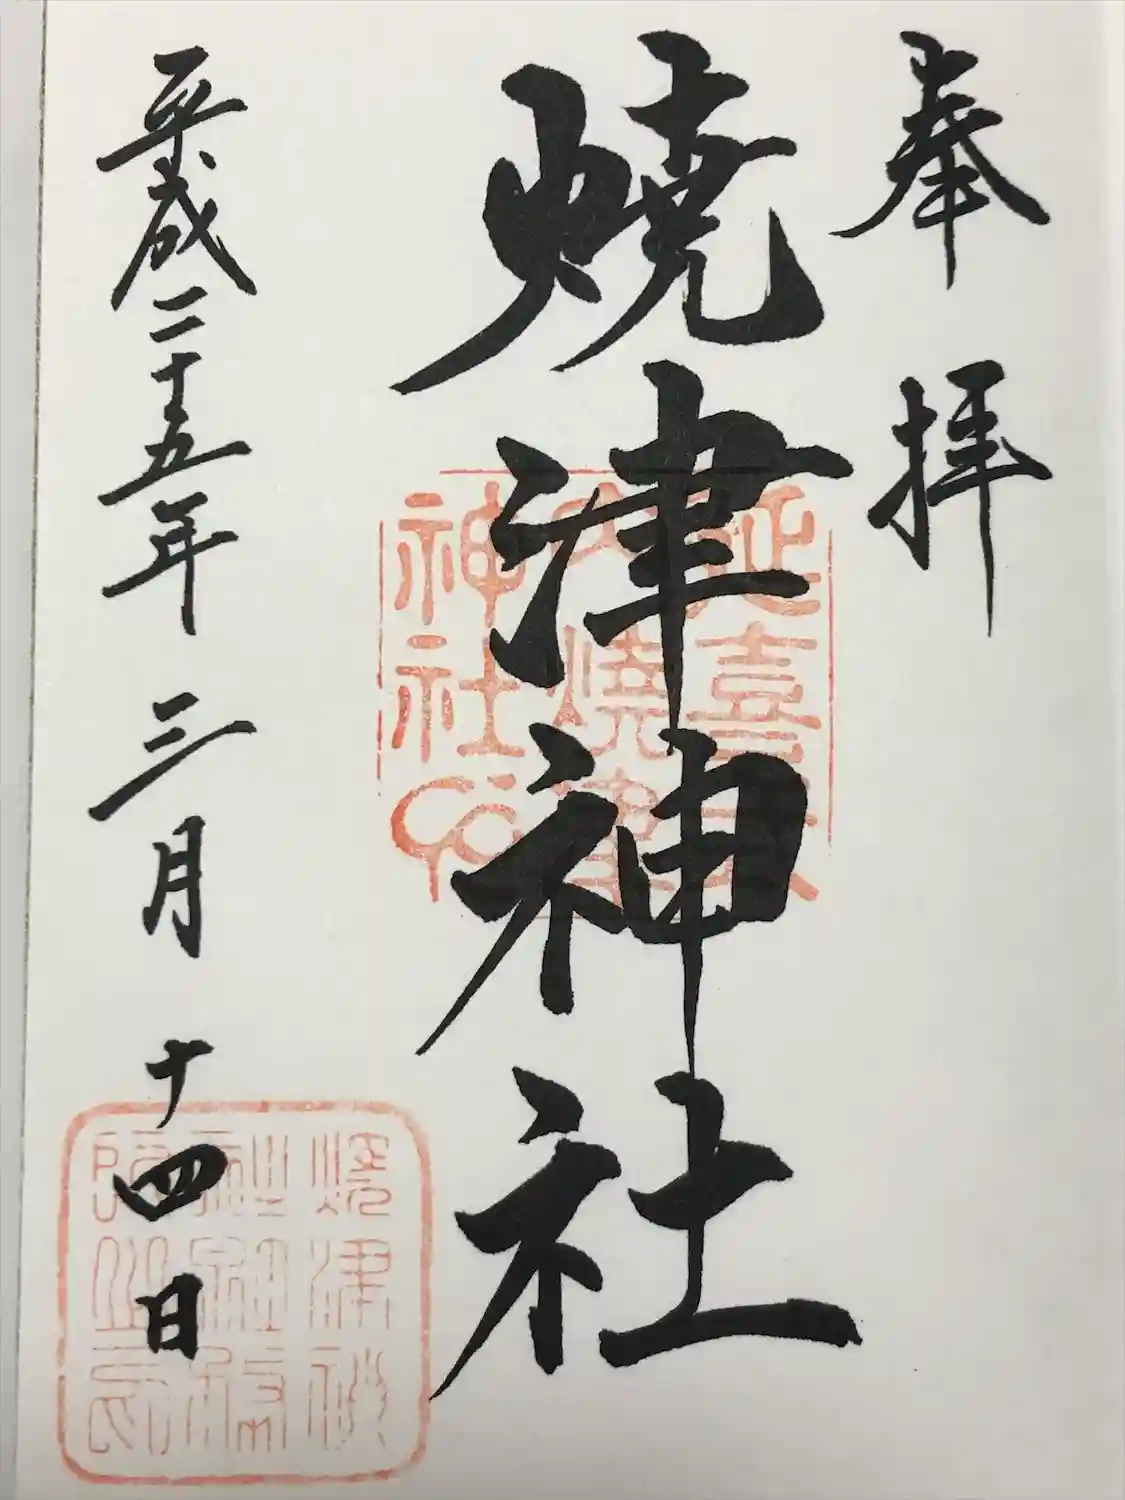 奉拝
焼津神社
平成二十五年三月十四日
延喜
神社